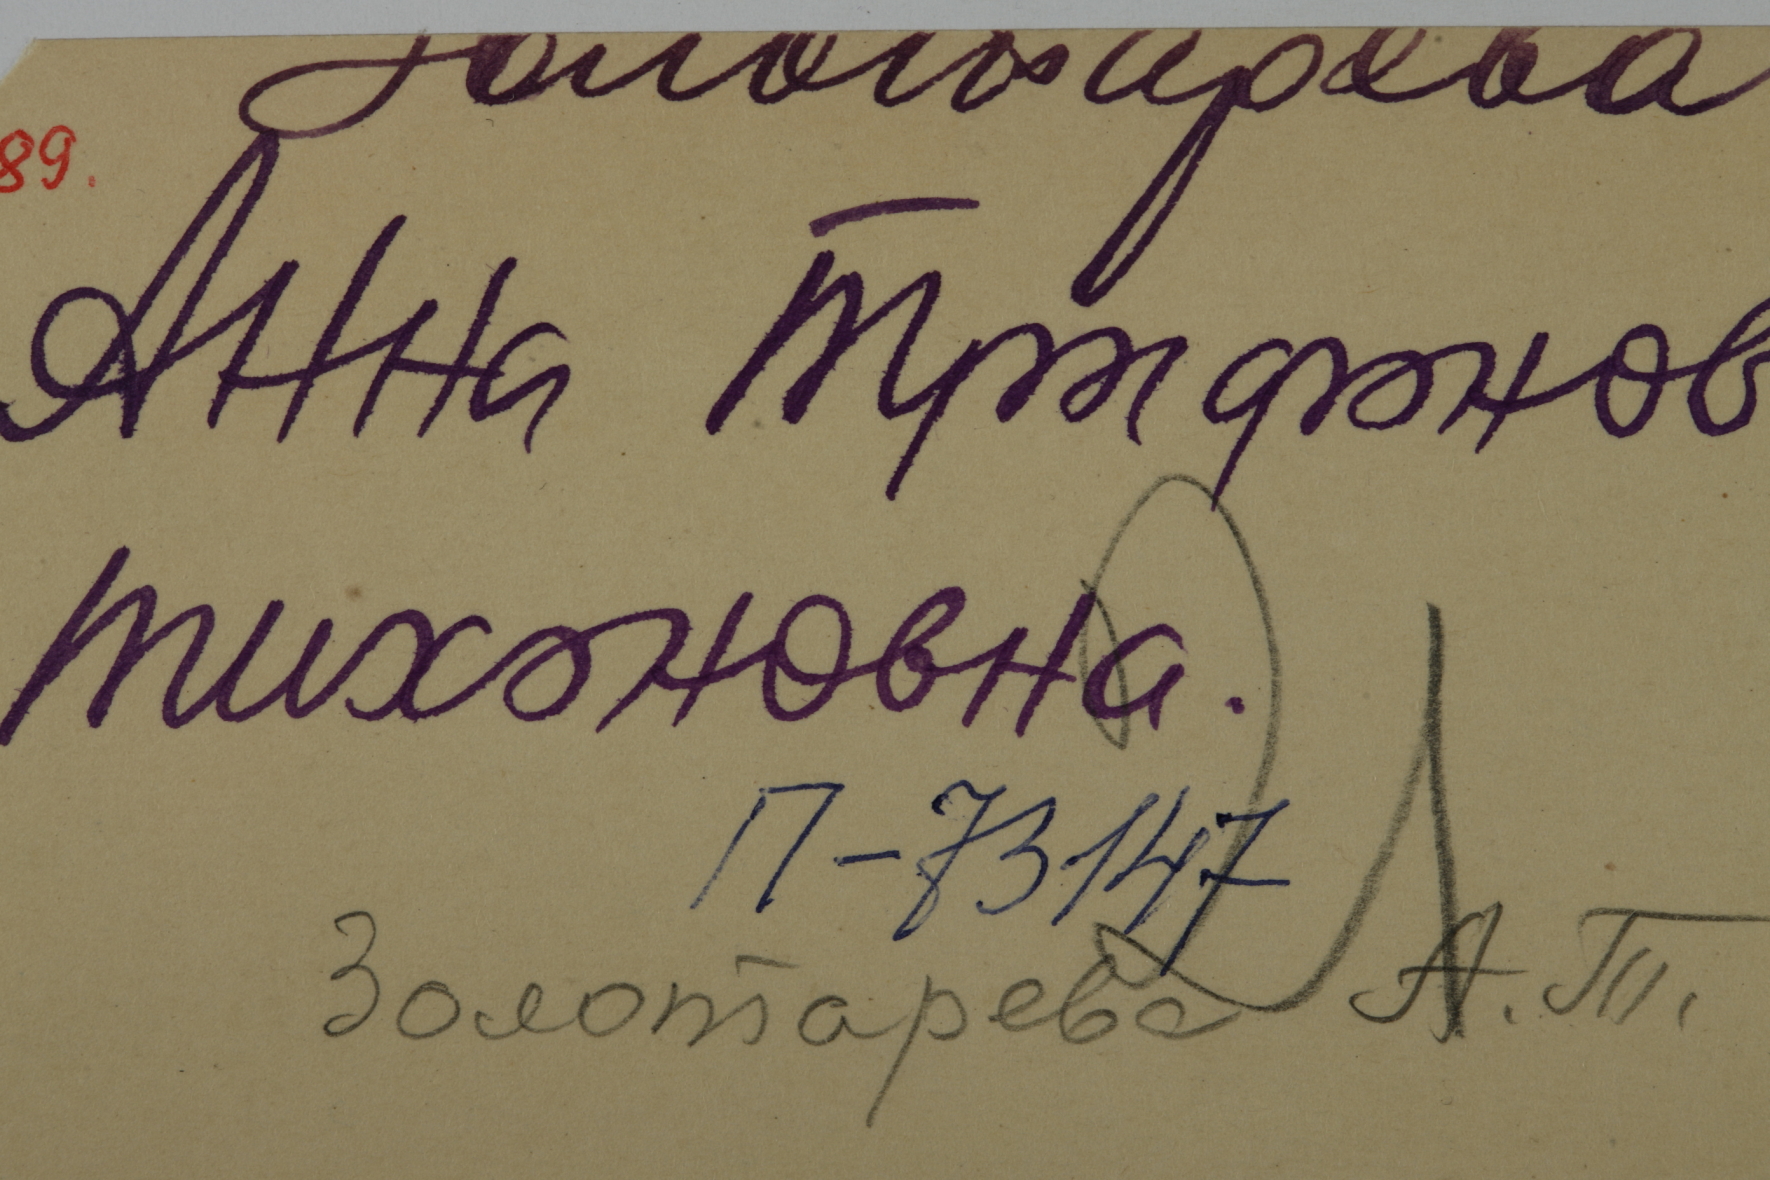 Золотарева
89.
Анна Трифонов
Тихоновна.
П-73147
Золотарева А.Т.